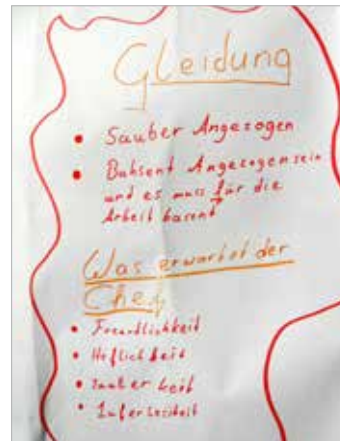 Gleidung
• Sauber Angezogen
• Bahsent Angezogen sein
und es muss für die
Arbeit basent
Was erwartet der
Chef
• Freundlichkeit
• Höflichkeit
• Sauberkeit